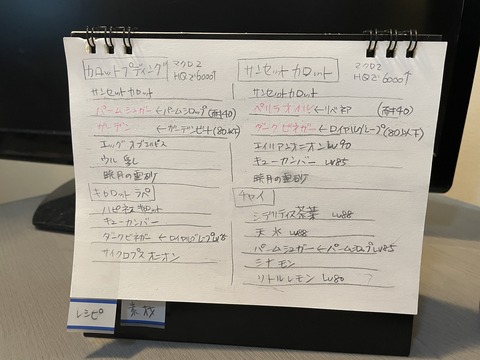 キャロットプディング マクロ2
HQで6000↑
サンセットキャロット
パームシュガー ←パームシロップ (耐40)
ガーデン ←ガーデンビート(80以下)
エッグ オブ
ウル
暁月の霊砂
キャロット ラペ
ハピネス キャロット
キューカンバー
ダークビネガー ← ロイヤルグレープLv
サイクロプス オニオン
サンセット キャロット マクロ2
HQで6000↑
サンセットキャロット
ペルラオイル ← (耐40)
ダークビネガー ←ロイヤルグレープ(80以下)
オニオンLv90
キューカンバー Lv85
暁月の霊砂
チャイ
シデリティス茶葉 Lv88
天水 Lv88
パームシュガー ← パームシロップLv85
シナモン
リトルレモン Lv80
レシピ
素材